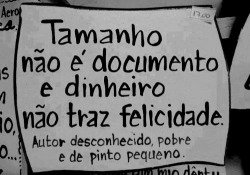 17,00
Aero
Tamanho
não é documento
e dinheiro
não traz felicidade.
Autor desconhecido, pobre
e de pinto pequeno.